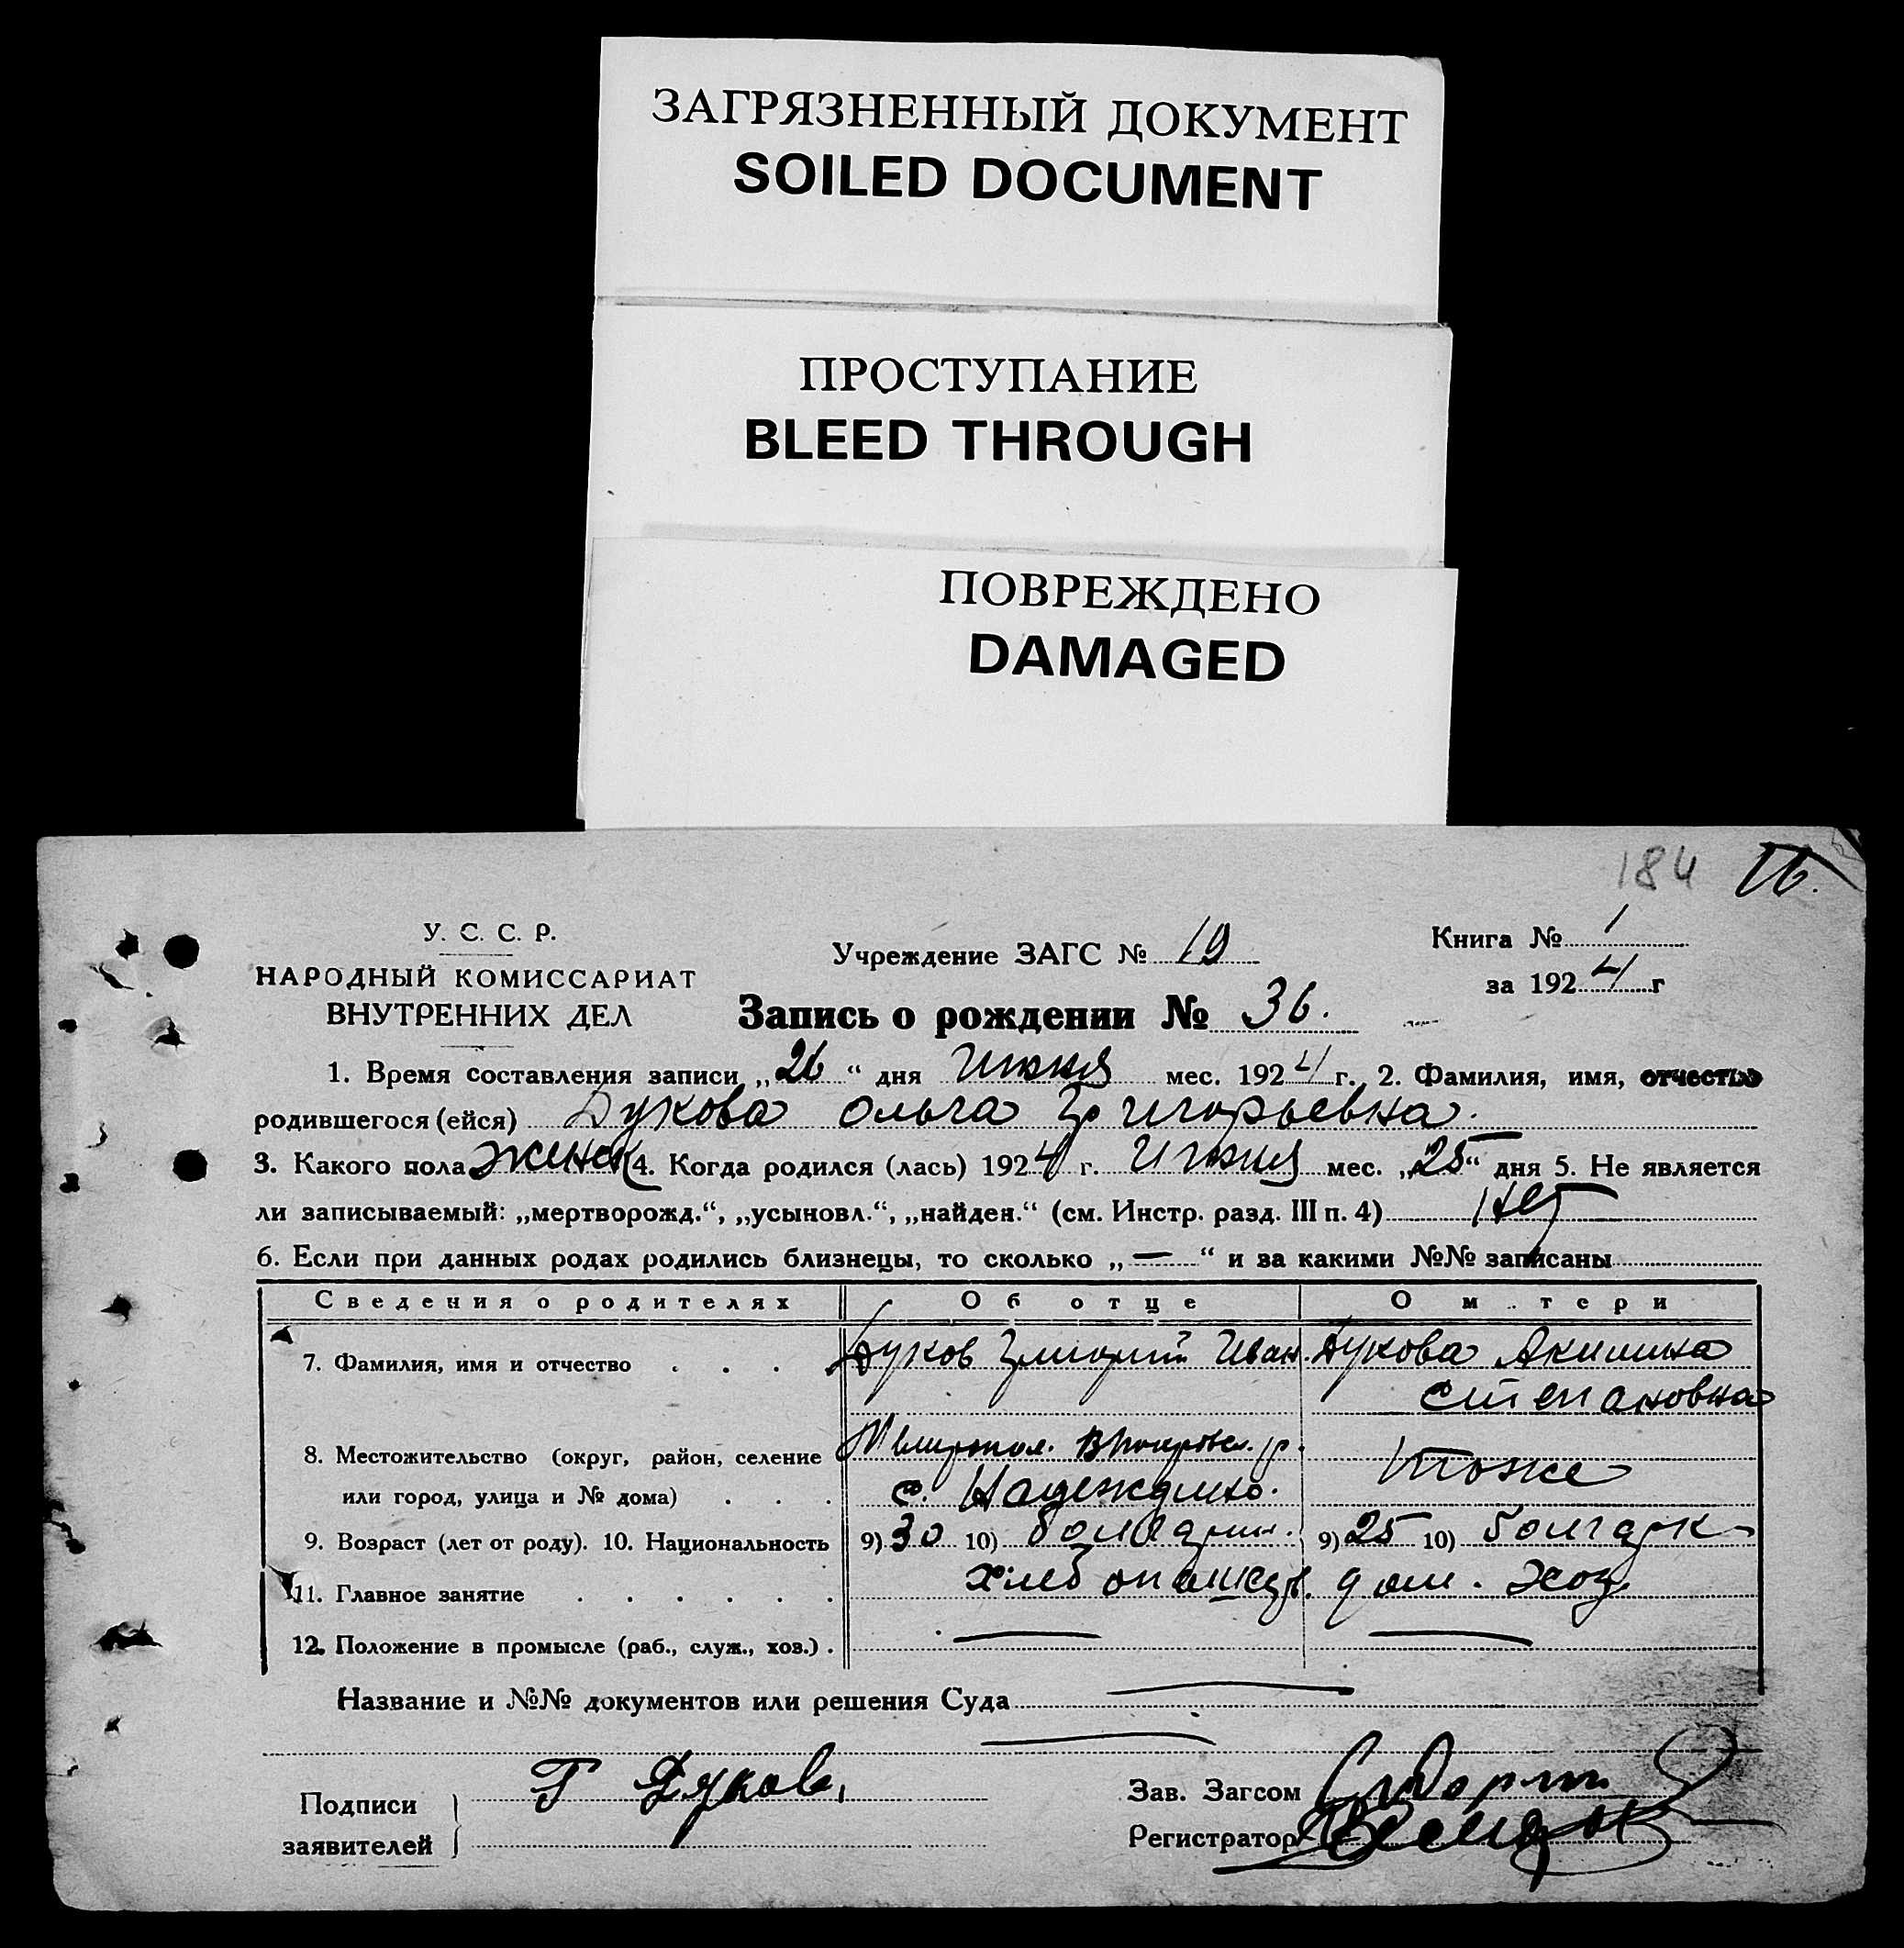 ЗАГРЯЗНЕННЫЙ ДОКУМЕНТ
SOILED DOCUMENT
ПРОСТУПАНИЕ
BLEED THROUGH
ПОВРЕЖДЕНО
DAMAGED
184 16.
У. С. С. Р.
НАРОДНЫЙ КОМИССАРИАТ
ВНУТРЕННИХ ДЕЛ
Учреждение ЗАГС № 19
Книга № 1
за 1924 г
Запись о рождении № 36.
1. Время составления записи „26“ дня Июня мес. 1924 г. 2. Фамилия, имя, отчество
родившегося (ейся) Дукова Ольга Григорьевна.
3. Какого пола женск 4. Когда родился (лась) 1924 г. Июня мес. „25“ дня 5. Не является
ли записываемый: „мертворожд.“, „усыновл.“, „найден.“ (см. Инстр. разд. III п. 4) Нет
6. Если при данных родах родились близнецы, то сколько „—“ и за какими №№ записаны
Сведения о родителях Об отце О м тери
7. Фамилия, имя и отчество . . . Дуков Григорий Иван. Дукова Акилина
Степановна
8. Местожительство (округ, район, селение Мелитопол. р.
или город, улица и № дома) . . . с. Надеждино. тоже
9. Возраст (лет от роду). 10. Национальность 9) 30 10) болгарин. 9) 25 10) болгарк
11. Главное занятие . . . . . . хлебопашец дом. хоз
12. Положение в промысле (раб., служ., хоз.) . — —
Название и №№ документов или решения Суда —
—
Подписи
заявителей
Г Дуков
Зав. Загсом
Регистратор